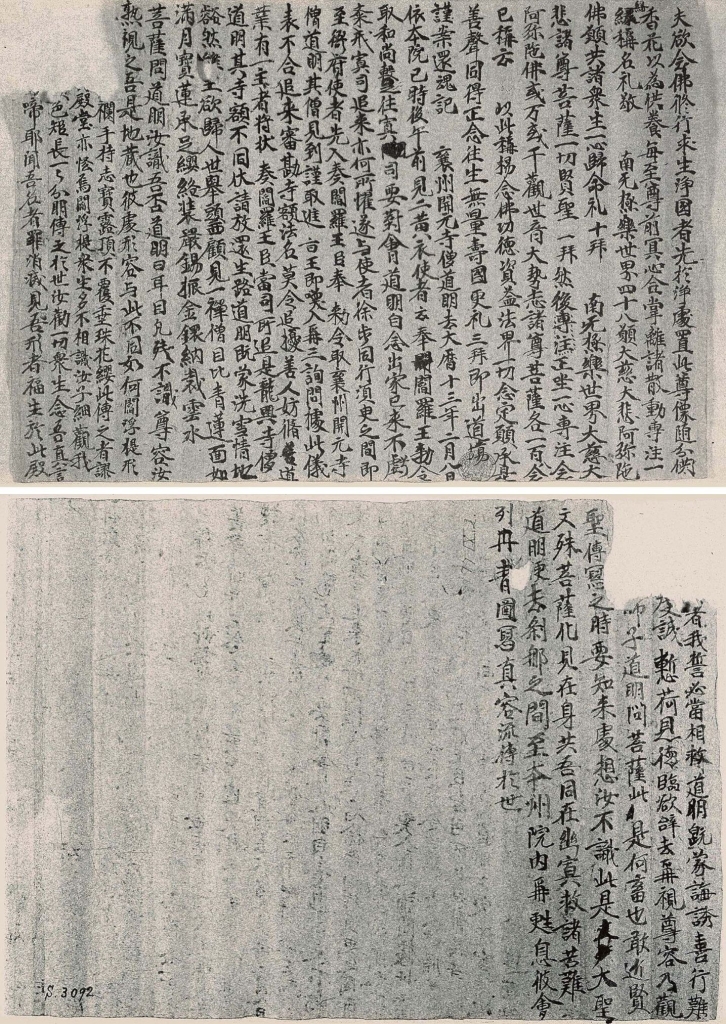 夫欲念佛修行求生淨國者先於淨處置此尊像隨分供
香花以為供養每至尊前冥心合掌離諸散動專注一
緣稱名礼敬　南无極樂世界四十八願大慈大悲阿弥陀
佛願共諸衆生一心歸命礼十拜　南无極樂世界大慈大
悲諸尊菩薩一切賢聖　一拜　然後專注正坐一心專注念
阿弥陀佛或万或千觀世音大勢志諸尊菩薩各一百念
已稱云　以此稱揚念佛功德資益法界一切念定願承是
善聲同得正念往生無量壽國更礼三拜即出道場
謹案還魂記　襄州開元寺僧道明去大曆十三年二月八日
依本院已時後午前見二黃衣使者云奉閻羅王勅令
取和尚蹔往冥司要對會道明自念出家已來不虧
齋戒冥司追來亦何所懼遂与使者徐步同行須臾之間即
至衙府使者先入奏閻羅王臣奉　勅令取襄州開元寺
僧道明其僧見到謹取進旨王即喚入再三詢問據此儀
表不合追來審勘寺額法名莫令追擾善人妨脩道
業有一主者將狀　奏閻羅王臣當司所追是龍興寺僧
道明其寺額不同伏請放還生路道明既蒙洗雪情地
豁然辤王欲歸人世舉頭西顧見一禪僧目比青蓮面如
滿月寶蓮承足纓絡裝嚴錫振金鐶納裁雲水
菩薩問道明汝識吾否道明曰耳目凡賤不識尊容汝
熟視之吾是地藏也彼處形容与此不同如何閻浮提形
襴手持志寶露頂不覆垂珠花纓此傳之者謬
殿堂亦恠焉閻浮提衆生多不相識汝子細觀我
色短長一一分明傳之於世汝勸一切衆生念吾真言
啼耶聞吾名者罪消滅見吾形者福生於此殿
者我誓必當相救道明既蒙誨誘喜行難
度誠慙荷恩德臨欲辞去再視尊容乃觀
師子道明問菩薩此是何畜也敢近賢
聖傳寫之時要知来處想汝不識此是大聖
文殊菩薩化見在身共吾同在幽冥救諸苦難
道明便去剎那之間至本州院內再甦息彼會
列丹青圖寫真容流傳於世
S.3092